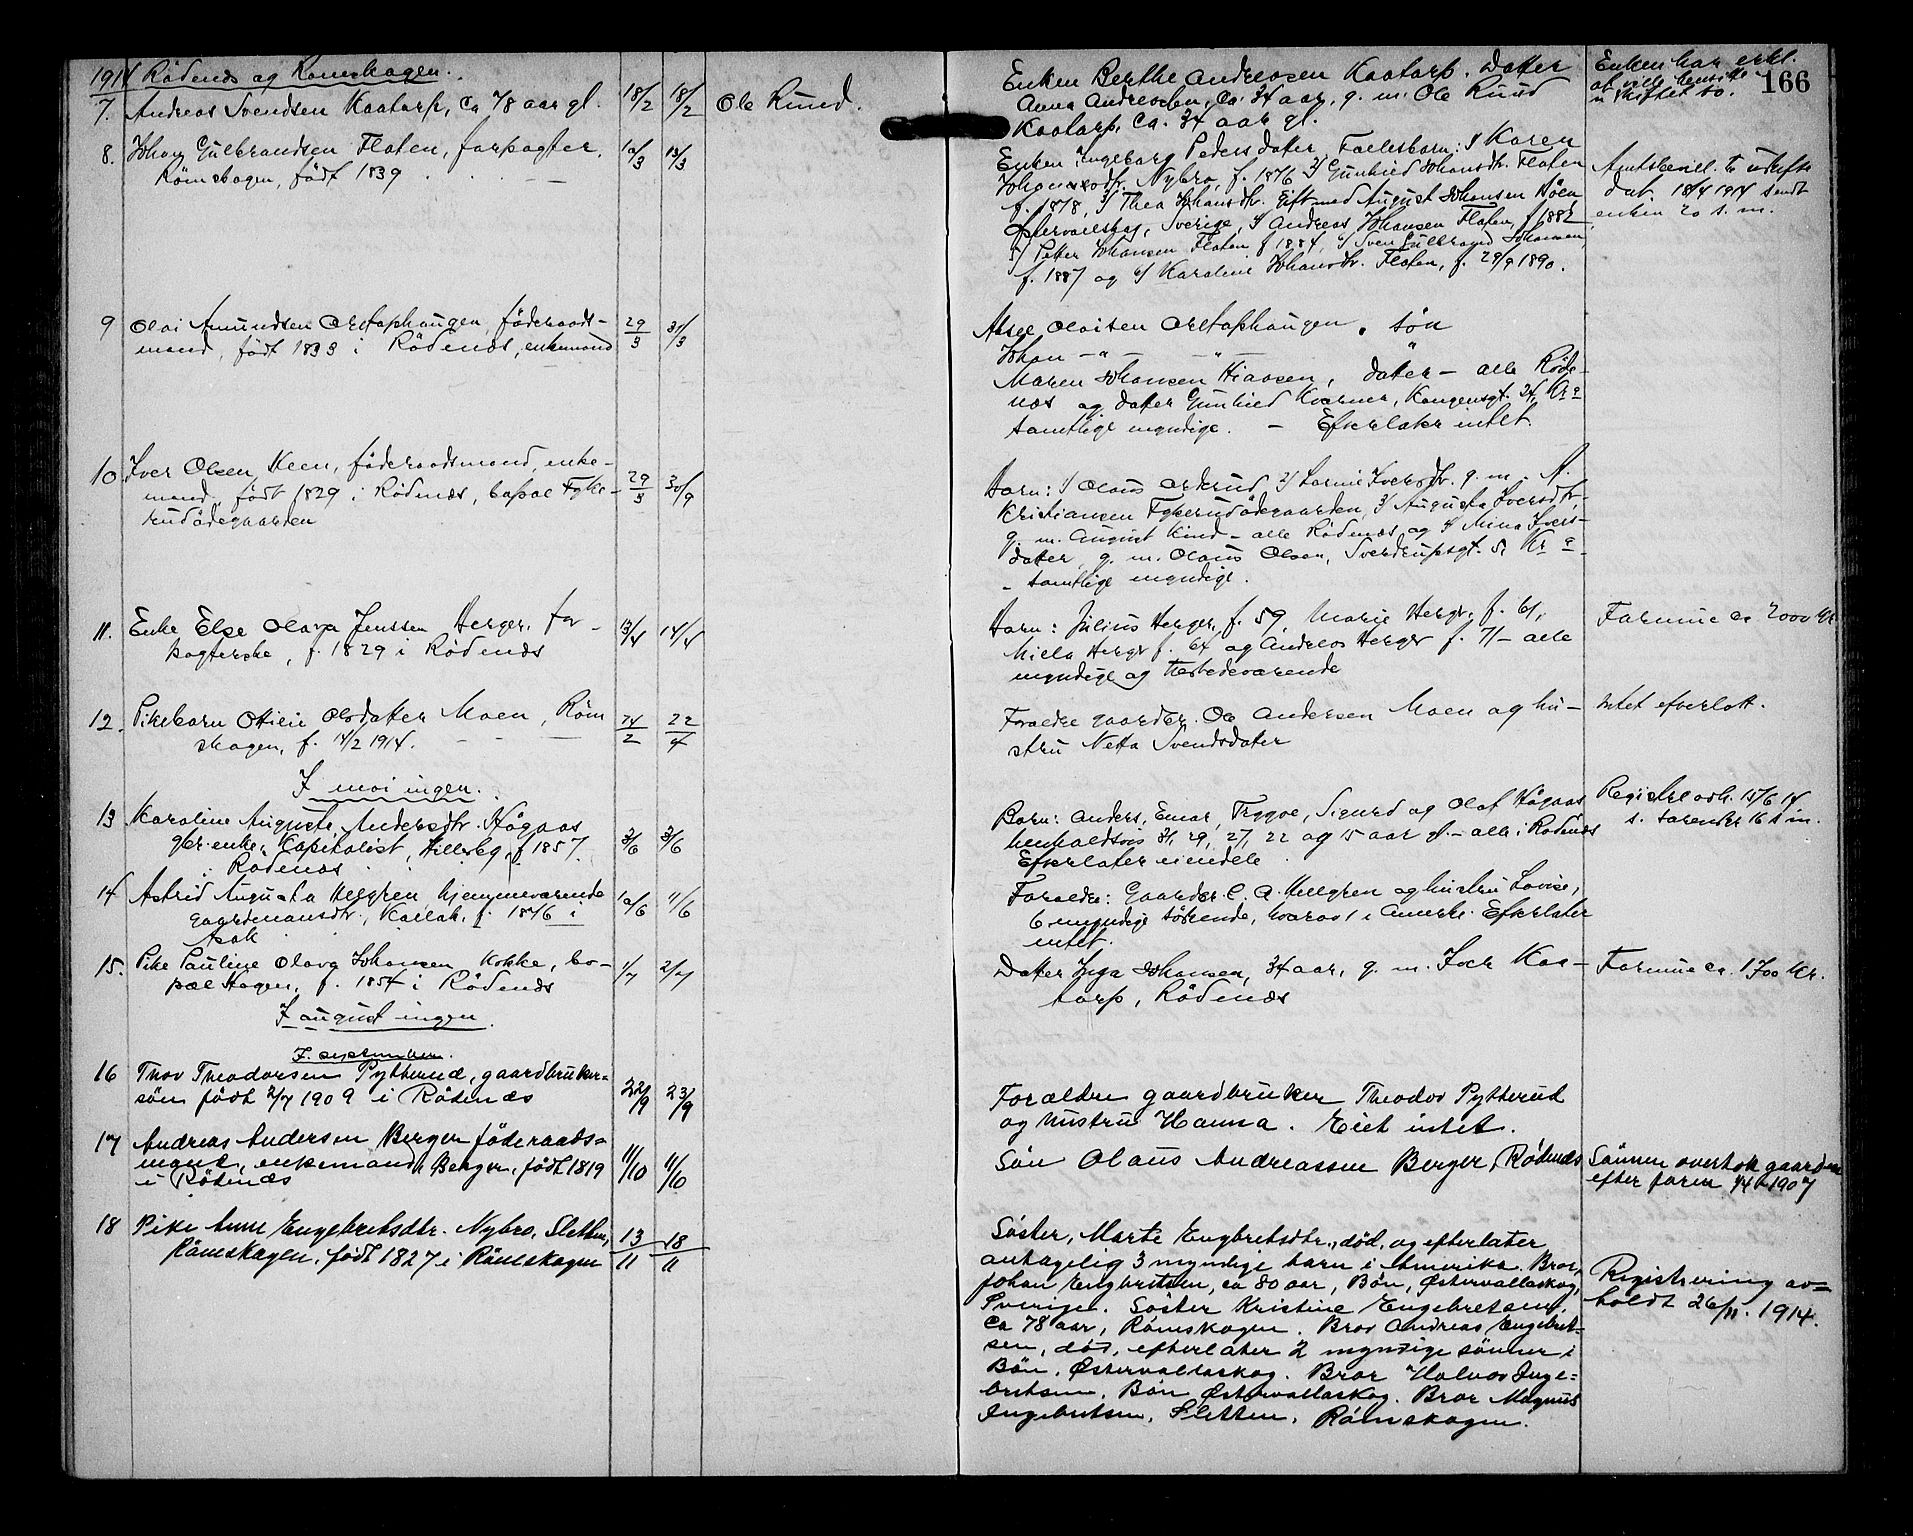 1914 Rödenes og Römskogen.
166
7. Andreas Svendsen Kaatorp, ca 78 aar gl. 18/2 18/2 Ole Ruud.
Enken Berthe Andreasen Kaatorp. Datter
Anna Andreasen, ca. 34 aar, g. m. Ole Ruud
Kaatorp, ca. 34 aar gl.
Enken har erkl.
at ville hensidde
i uskiftet bo.
8. Johan Gulbrandsen Floten, forpagter,
Römskogen, født 1839
10/3 13/3
Enken Ingeborg Pedersdatter, Faellesbarn: 1/ Karen
Johansdtr. Nybro, f. 1876 2/ Gunhild Johansdtr. Floten
f. 1878, 3/ Thea Johansdtr. Gift med August Johansen Böen
Östervallskog, Sverige, 4/ Andreas Johansen Floten, f. 1882
5/ Petter Johansen Floten f. 1884, 6/ Sven Gulbrand Johansen,
f. 1887 og 6/ Karoline Johansdtr. Floten, f. 29/9 1890.
Amtsbevill. t. uskifte
dat. 18/4 1914 sendt
enken 20 s. m.
9 Olai Amundsen Ortophaugen, föderaads-
mand, født 1833 i Rödenes, enkemand
29/3 31/3
Olaisen Ortophaugen, sön
Johan -"- -"- "
Maren Johansen Haasen, datter - alle Röde-
nes og datter Gunhild Kverner, Kongensgt. 24, Kr.a
samtlige myndige. - Efterlater intet.
10 Iver Olsen Keen, föderaadsmand, enke-
mand, født 1829 i Rödenes, bopael Fyke-
rudödegaarden
29/3 30/9
Barn: 1/ Olaus Orkrud, 2/ Lornie Iversdtr. g. m. A.
Kristiansen Fykerudödegaarden, 3/ Augusta Iversdtr.
g. m. August Kind - alle Rödenes, og 4/ Mina Ivers-
datter, g. m. Olaus Olsen, Sverdrupsgt. 5, Kr.a
- samtlige myndige.
11. Enke Else Olava Jenssen Berger, for-
pagterske, f. 1829 i Rödenes
13/4 14/4
Barn: Julius Berger, f. 59, Marie Berger, f. 61,
Berger f. 64 og Andreas Berger f. 71 - alle
myndige og tilstedevaerende
Formue ca 2000 kr
12. Pikebarn Otilie Olsdatter Moen, Röm
skogen, f. 14/2 1914.
24/2 22/4
Foraeldre gaardbr. Ole Andersen Moen og hu-
stru Netta Svendsdater
Intet efterlatt.
I mai ingen.
13 Karoline Auguste Andersdtr. Högaas
gbr. enke, Kapitalist, f. 1857
i Rödenes
3/6 3/6
Barn: Anders, Einar, Trygve, Sigurd og Olaf Högaas
henholdsvis 31, 29, 27, 22 og 15 aar gl. - alle i Rödenes
Efterlater eiendele
Registrel avh. 15/6 14
s. sorensk. 16 s. m.
14 Astrid Augusta Hellgren, hjemmevaerende
gaardmansdtr., Kollak, f. 1896 i
Asak
10/6 11/6
Foraeldre: Gaardbr. C. A. Hellgren og hustru Lovise,
6 myndige söskende, hvorav 1 i Amerika. Efterlater
intet.
15. Pike Pauline Olava Johansen Kokke, bo-
pael Hagen, f. 1854 i Rödenes
1/7 2/7
Datter Inga Johansen, 34 aar, g. m. Iver Kaa-
torp, Rödenes
Formue ca. 1700 kr.
I august ingen.
I september.
16 Thor Theodorsen Pytterud, gaardbruker-
sön født 2/7 1909 i Rödenes
22/9 23/9
Foraeldre gaardbruker Theodor Pytterud
og hustru Hanna. Eiet intet.
17 Andreas Andersen Berger föderaads-
mand, enkemand, Berger, født 1819
i Rödenes
11/10 11/10
Sön Olaus Andreassen Berger, Rödenes
Sönnen overtok gaarden
efter faren 1907
18 Pike Anne Engebretsdtr. Nybro, Sletten,
Römskogen, født 1827 i Römskogen
13/11 18/11
Söster, Marte Engebretsdtr., död, og efterlater
antagelig 3 myndige barn i Amerika. Bror,
Johan Engebretsen, ca 80 aar, Bön, Östervallaskog,
Sverige. Söster Kristine Engebretsen,
ca 78 aar, Römskogen. Bror Andreas Engebret-
sen, död, efterlater 2 myndige sönner i
Bön, Östervallaskog. Bror Halvor Inge-
bretsen, Bön Östervallaskog. Bror Magnus
Ingebretsen, Sletten, Römskogen.
Registrering av-
holdt 26/11. 1914.